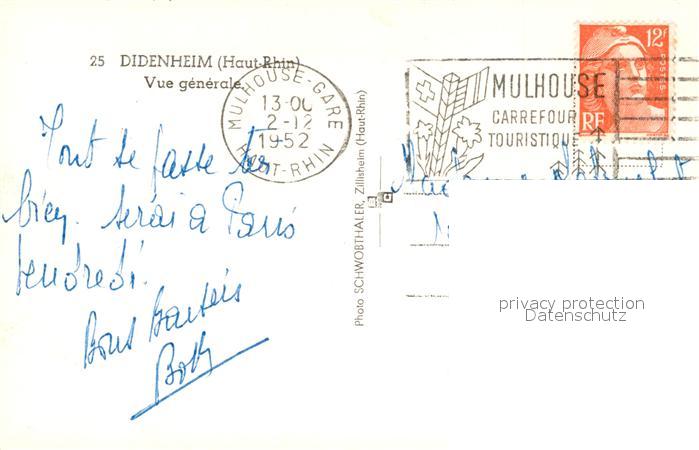 25 DIDENHEIM (Haut-Rhin)
Vue générale
MULHOUSE-GARE
13-00
2-12
1952
HAUT-RHIN
MULHOUSE
CARREFOUR
TOURISTIQUE
12F
POSTES
RF
Tout se passe très
bien. Serai à Paris
Vendredi.
Bons baisers
Photo SCHWOBTHALER, Zillisheim (Haut-Rhin)
privacy protection
Datenschutz